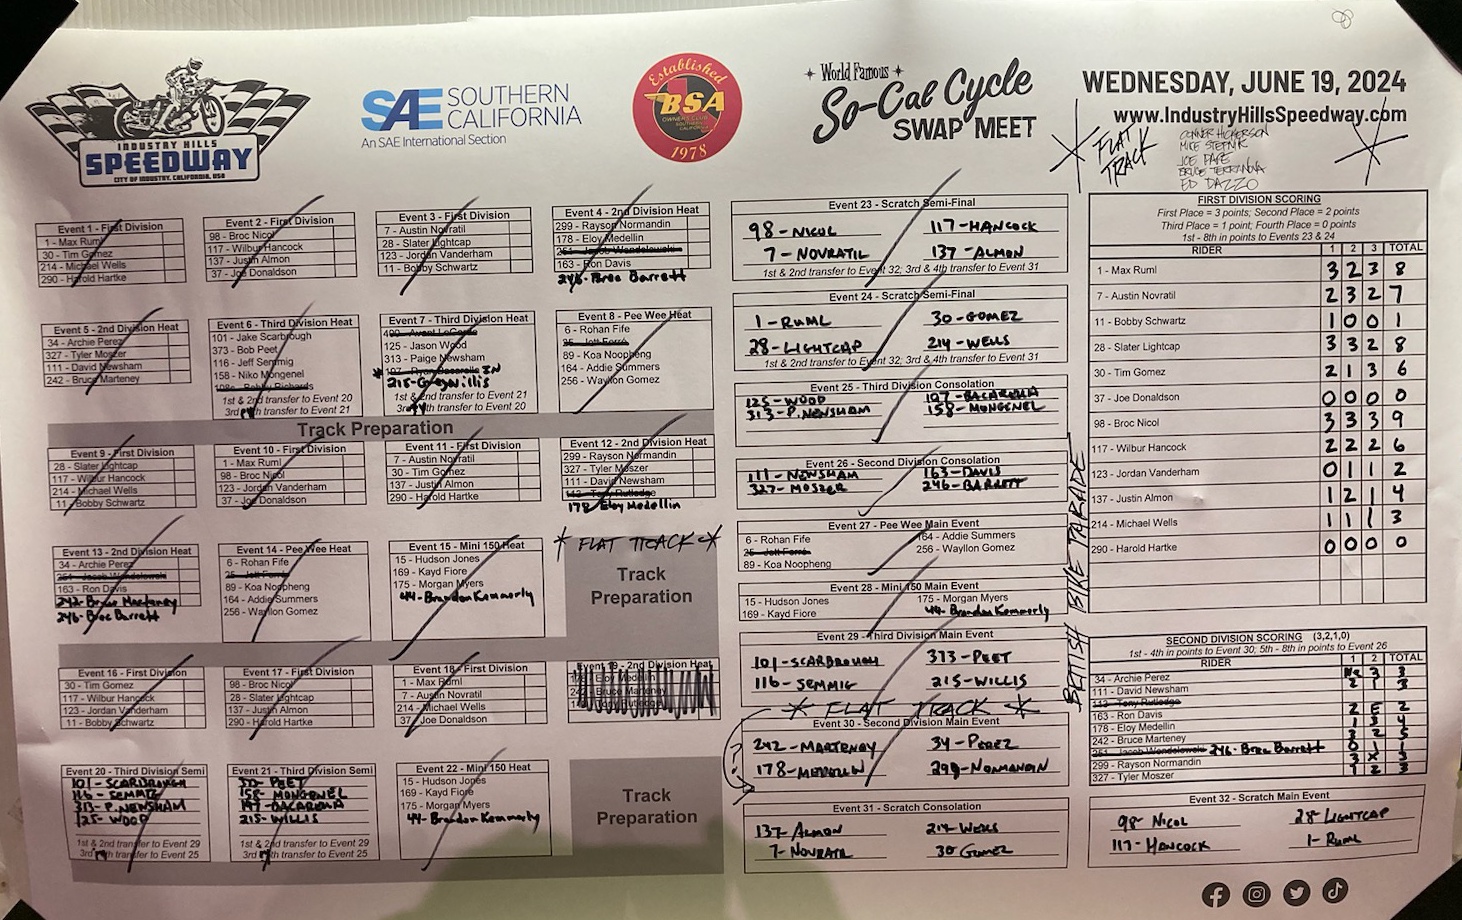 INDUSTRY HILLS
SPEEDWAY
CITY OF INDUSTRY, CALIFORNIA, USA
SAE SOUTHERN
CALIFORNIA
An SAE International Section
Established
BSA
OWNERS CLUB
1978
World Famous
So-Cal Cycle
SWAP MEET
WEDNESDAY, JUNE 19, 2024
www.IndustryHillsSpeedway.com
FLAT
TRACK
MIKE
JOE
BRUCE TERRANOVA
ED DAZZO
Event 1 - First Division
1 - Max Ruml
30 - Tim Gomez
214 - Michael Wells
290 - Harold Hartke
Event 2 - First Division
98 - Broc Nicol
117 - Wilbur Hancock
137 - Justin Almon
37 - Joe Donaldson
Event 3 - First Division
7 - Austin Novratil
28 - Slater Lightcap
123 - Jordan Vanderham
11 - Bobby Schwartz
Event 4 - 2nd Division Heat
299 - Rayson Normandin
178 - Eloy Medellin
251 - Jacob Wendelowski
163 - Ron Davis
246- Broc Barrett
Event 5 - 2nd Division Heat
34 - Archie Perez
327 - Tyler Moszer
111 - David Newsham
242 - Bruce Marteney
Event 6 - Third Division Heat
101 - Jake Scarbrough
373 - Bob Peet
116 - Jeff Semmig
158 - Niko Mongenel
Bobby Richards
1st & 2nd transfer to Event 20
3rd 4th transfer to Event 21
Event 7 - Third Division Heat
125 - Jason Wood
313 - Paige Newsham
IN
215- Greg Willis
1st & 2nd transfer to Event 21
3rd 4th transfer to Event 20
Event 8 - Pee Wee Heat
6 - Rohan Fife
25 - Jett Forré
89 - Koa Noopheng
164 - Addie Summers
256 - Wayllon Gomez
Track Preparation
Event 9 - First Division
28 - Slater Lightcap
117 - Wilbur Hancock
214 - Michael Wells
11 - Bobby Schwartz
Event 10 - First Division
1 - Max Ruml
98 - Broc Nicol
123 - Jordan Vanderham
37 - Joe Donaldson
Event 11 - First Division
7 - Austin Novratil
30 - Tim Gomez
137 - Justin Almon
290 - Harold Hartke
Event 12 - 2nd Division Heat
299 - Rayson Normandin
327 - Tyler Moszer
111 - David Newsham
112 - Tony Rutledge
178 Eloy Medellin
Event 13 - 2nd Division Heat
34 - Archie Perez
251 - Jacob Wendelowski
163 - Ron Davis
242- Bruce Marteney
246- Broc Barrett
Event 14 - Pee Wee Heat
6 - Rohan Fife
25 - Jett Forré
89 - Koa Noopheng
164 - Addie Summers
256 - Wayllon Gomez
Event 15 - Mini 150 Heat
15 - Hudson Jones
169 - Kayd Fiore
175 - Morgan Myers
44- Brandon Kemmerly
* FLAT TRACK *
Track
Preparation
Event 16 - First Division
30 - Tim Gomez
117 - Wilbur Hancock
123 - Jordan Vanderham
11 - Bobby Schwartz
Event 17 - First Division
98 - Broc Nicol
28 - Slater Lightcap
137 - Justin Almon
290 - Harold Hartke
Event 18 - First Division
1 - Max Ruml
7 - Austin Novratil
214 - Michael Wells
37 - Joe Donaldson
Event 19 - 2nd Division Heat
Event 20 - Third Division Semi
101 - SCARBROUGH
116 - SEMMIG
313 - P. NEWSHAM
125 - WOOD
1st & 2nd transfer to Event 29
3rd 4th transfer to Event 25
Event 21 - Third Division Semi
373 - PEET
158 - MONGENEL
215 - WILLIS
1st & 2nd transfer to Event 29
3rd 4th transfer to Event 25
Event 22 - Mini 150 Heat
15 - Hudson Jones
169 - Kayd Fiore
175 - Morgan Myers
44- Brandon Kemmerly
Track
Preparation
Event 23 - Scratch Semi-Final
98 - NICOL 117 - HANCOCK
7 - NOVRATIL 137 - ALMON
1st & 2nd transfer to Event 32; 3rd & 4th transfer to Event 31
Event 24 - Scratch Semi-Final
1 - RUML 30 - GOMEZ
28 - LIGHTCAP 214 - WELLS
1st & 2nd transfer to Event 32; 3rd & 4th transfer to Event 31
Event 25 - Third Division Consolation
125 - WOOD
313 - P. NEWSHAM 158 - MONGENEL
Event 26 - Second Division Consolation
111 - NEWSHAM 163 - DAVIS
327 - MOSZER 246 - BARRETT
Event 27 - Pee Wee Main Event
6 - Rohan Fife 164 - Addie Summers
25 - Jett Forré 256 - Wayllon Gomez
89 - Koa Noopheng
Event 28 - Mini 150 Main Event
15 - Hudson Jones 175 - Morgan Myers
169 - Kayd Fiore 44- Brandon Kemmerly
Event 29 - Third Division Main Event
101 - SCARBROUGH 373 - PEET
116 - SEMMIG 215 - WILLIS
* FLAT TRACK *
Event 30 - Second Division Main Event
242 - MARTENEY 34 - PEREZ
178 - MEDELLIN 299 - NORMANDIN
Event 31 - Scratch Consolation
137- ALMON 214- WELLS
7- NOVRATIL 30 GOMEZ
BRITISH BIKE PARADE
FIRST DIVISION SCORING
First Place = 3 points; Second Place = 2 points
Third Place = 1 point; Fourth Place = 0 points
1st - 8th in points to Events 23 & 24
RIDER 1 2 3 TOTAL
1 - Max Ruml 3 2 3 8
7 - Austin Novratil 2 3 2 7
11 - Bobby Schwartz 1 0 0 1
28 - Slater Lightcap 3 3 2 8
30 - Tim Gomez 2 1 3 6
37 - Joe Donaldson 0 0 0 0
98 - Broc Nicol 3 3 3 9
117 - Wilbur Hancock 2 2 2 6
123 - Jordan Vanderham 0 1 1 2
137 - Justin Almon 1 2 1 4
214 - Michael Wells 1 1 1 3
290 - Harold Hartke 0 0 0 0
SECOND DIVISION SCORING (3,2,1,0)
1st - 4th in points to Event 30; 5th - 8th in points to Event 26
RIDER 1 2 TOTAL
34 - Archie Perez 3 3
111 - David Newsham 2 1 3
112 - Tony Rutledge
163 - Ron Davis 2 E 2
178 - Eloy Medellin 1 3 4
242 - Bruce Marteney 3 2 5
251 - Jacob Wendelowski 246- Broc Barrett 0 1 1
299 - Rayson Normandin 3 X 3
327 - Tyler Moszer 1 2 3
Event 32 - Scratch Main Event
98- NICOL 28- LIGHTCAP
117- HANCOCK 1- RUML